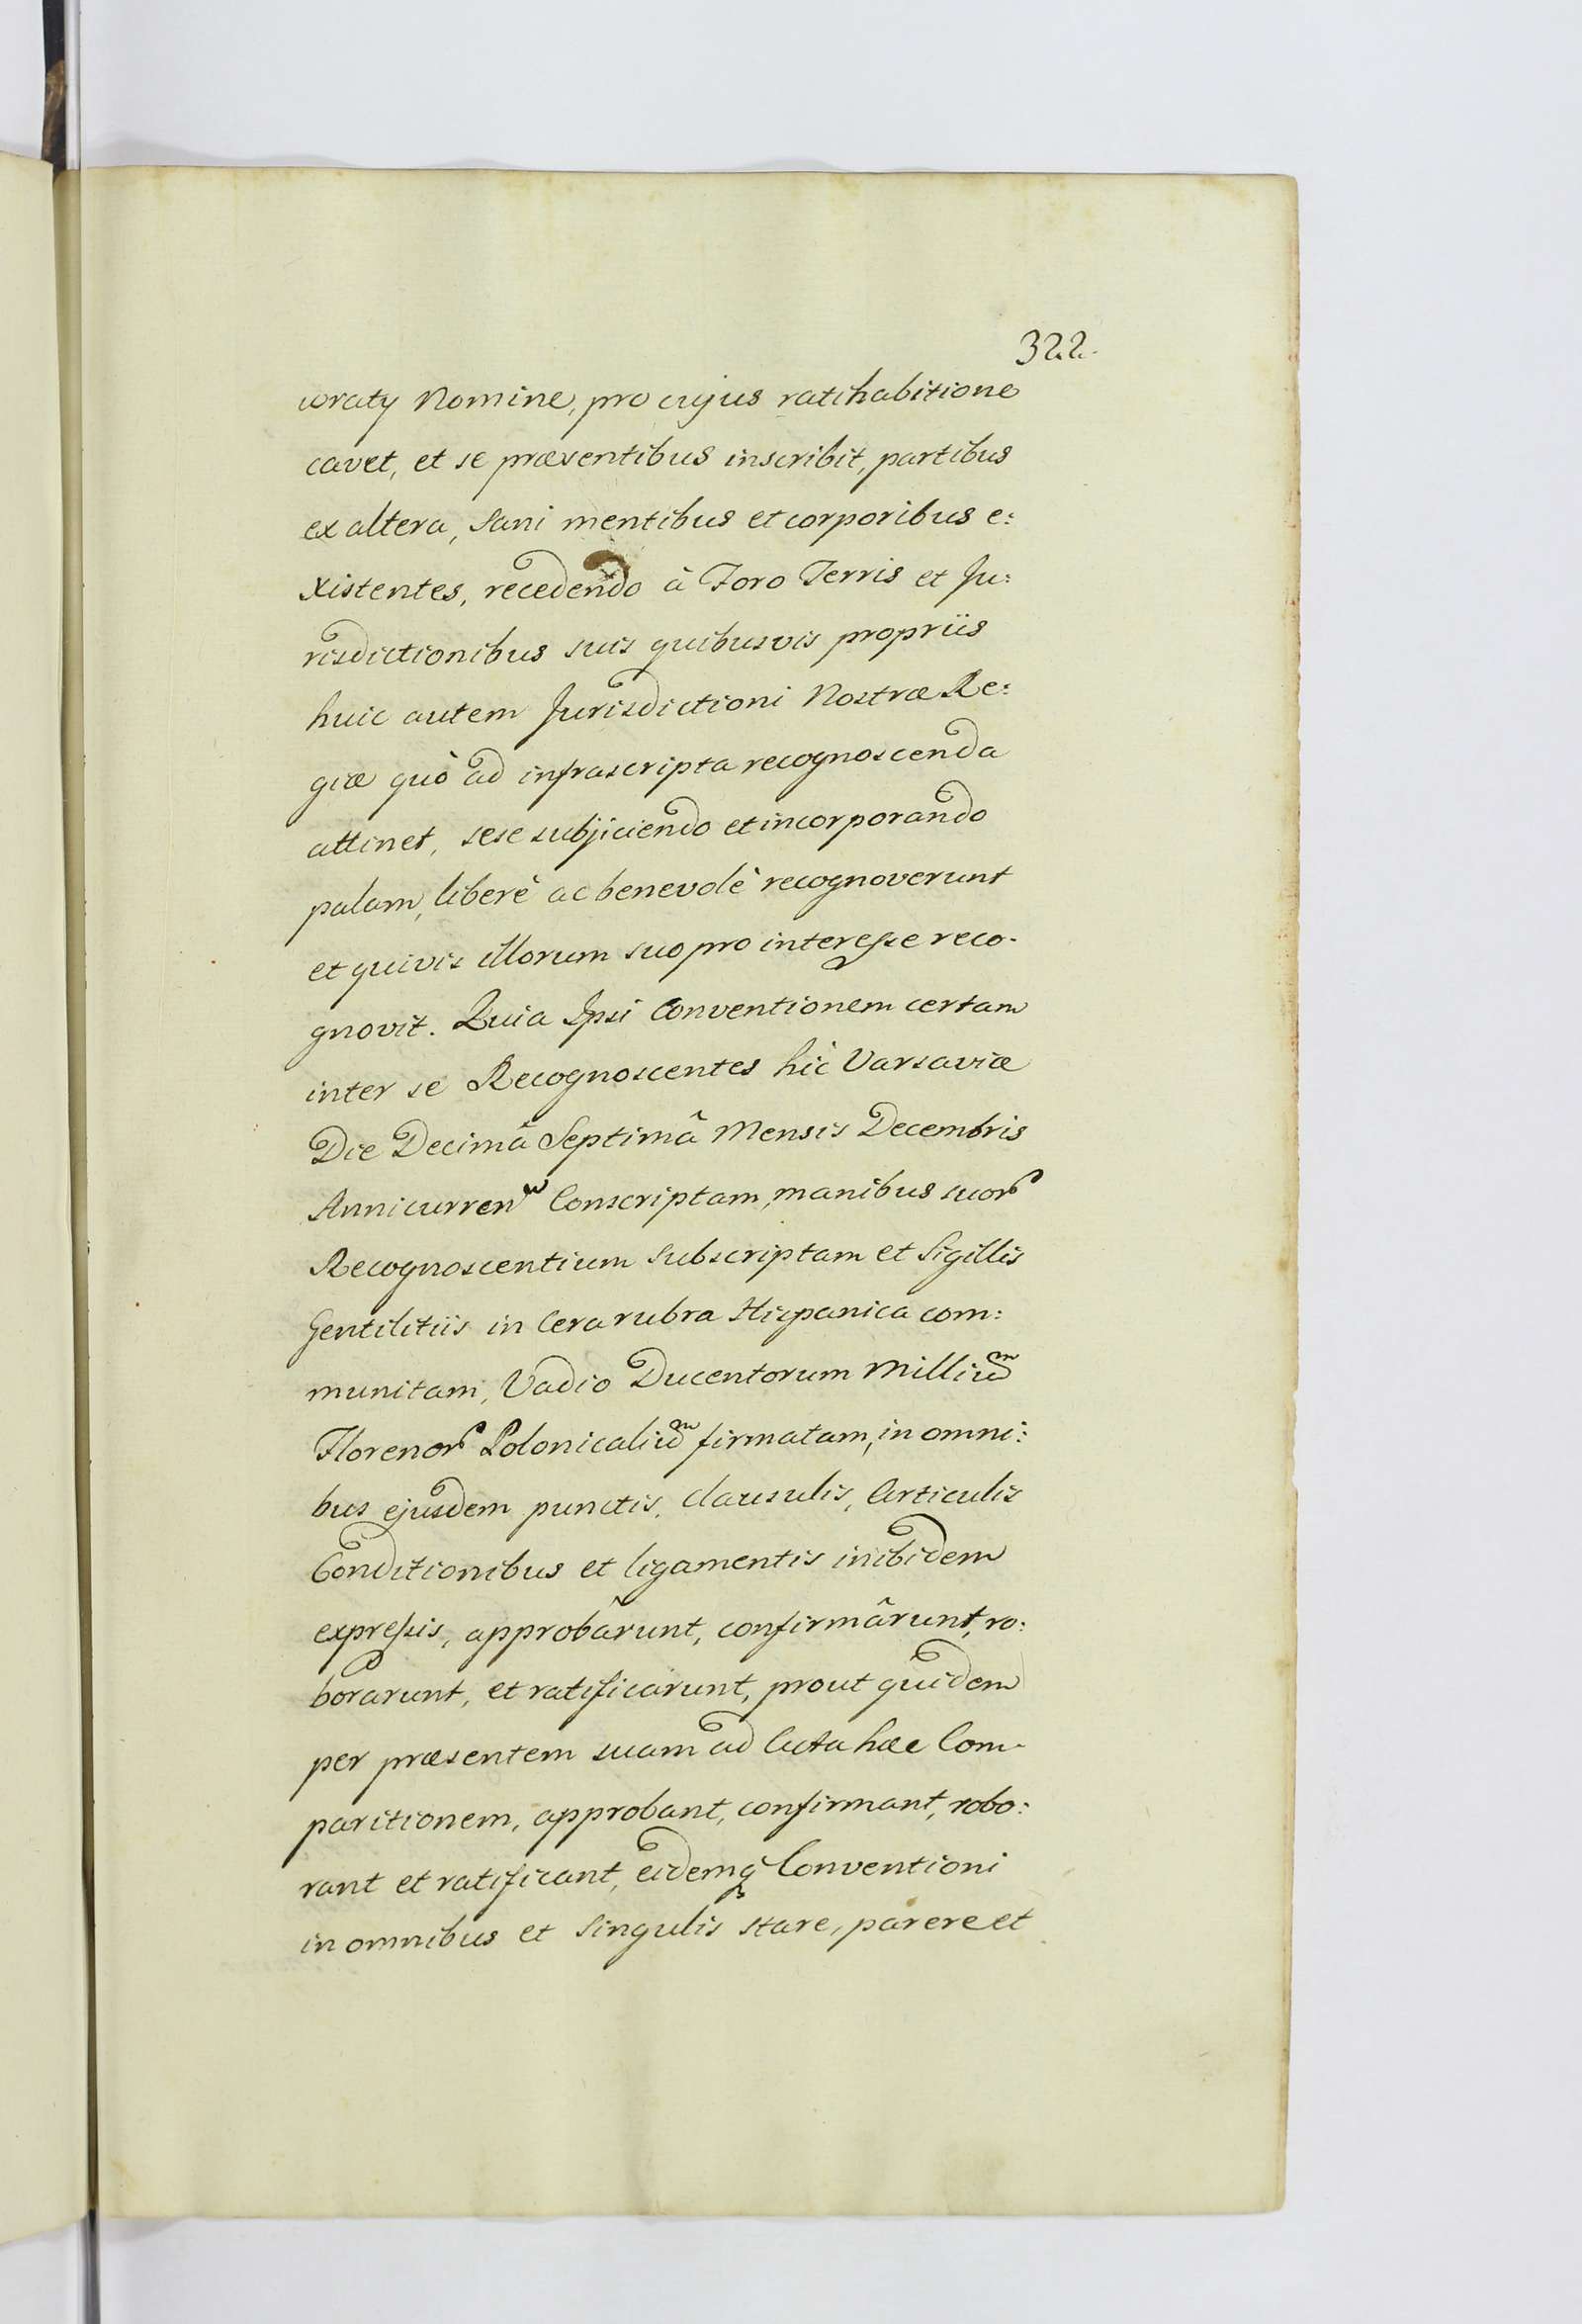 322.
woraty Nomine, pro cujus ratihabitione
cavet, et se præsentibus inscribit, partibus
ex altera, Sani mentibus et corporibus e:
xistentes, recedendo à Foro Terris et Ju:
risdictionibus suis quibusvis propriis
huic autem Jurisdictioni Nostræ Re:
giæ quò ad infrascripta recognoscenda
attinet, sese subjiciendo et incorporando
palam, liberè ac benevolè recognoverunt
et quivis illorum suo pro interesse reco-
gnovit. Quia Ipsi Conventionem certam
inter se Recognoscentes hìc Varsaviæ
Die Decimâ Septimâ Mensis Decembris
Anni curren Conscriptam, manibus suor
Recognoscentium Subscriptam et Sigillis
Gentilitiis in Cera rubra Hispanica com:
munitam, Vadio Ducentorum Milliu͠m
Florenor Polonicaliu͠m firmatam, in omni:
bus ejusdem punctis, Clausulis, Articulis
Conditionibus et ligamentis inibidem
expressis, approbârunt, confirmârunt, ro:
borarunt, et ratificarunt, prout quidem
per præsentem suam ad Acta hæc Com-
paritionem, approbant, confirmant, robo:
rant et ratificant, eidemq́ Conventioni
in omnibus et Singulis stare, parere et